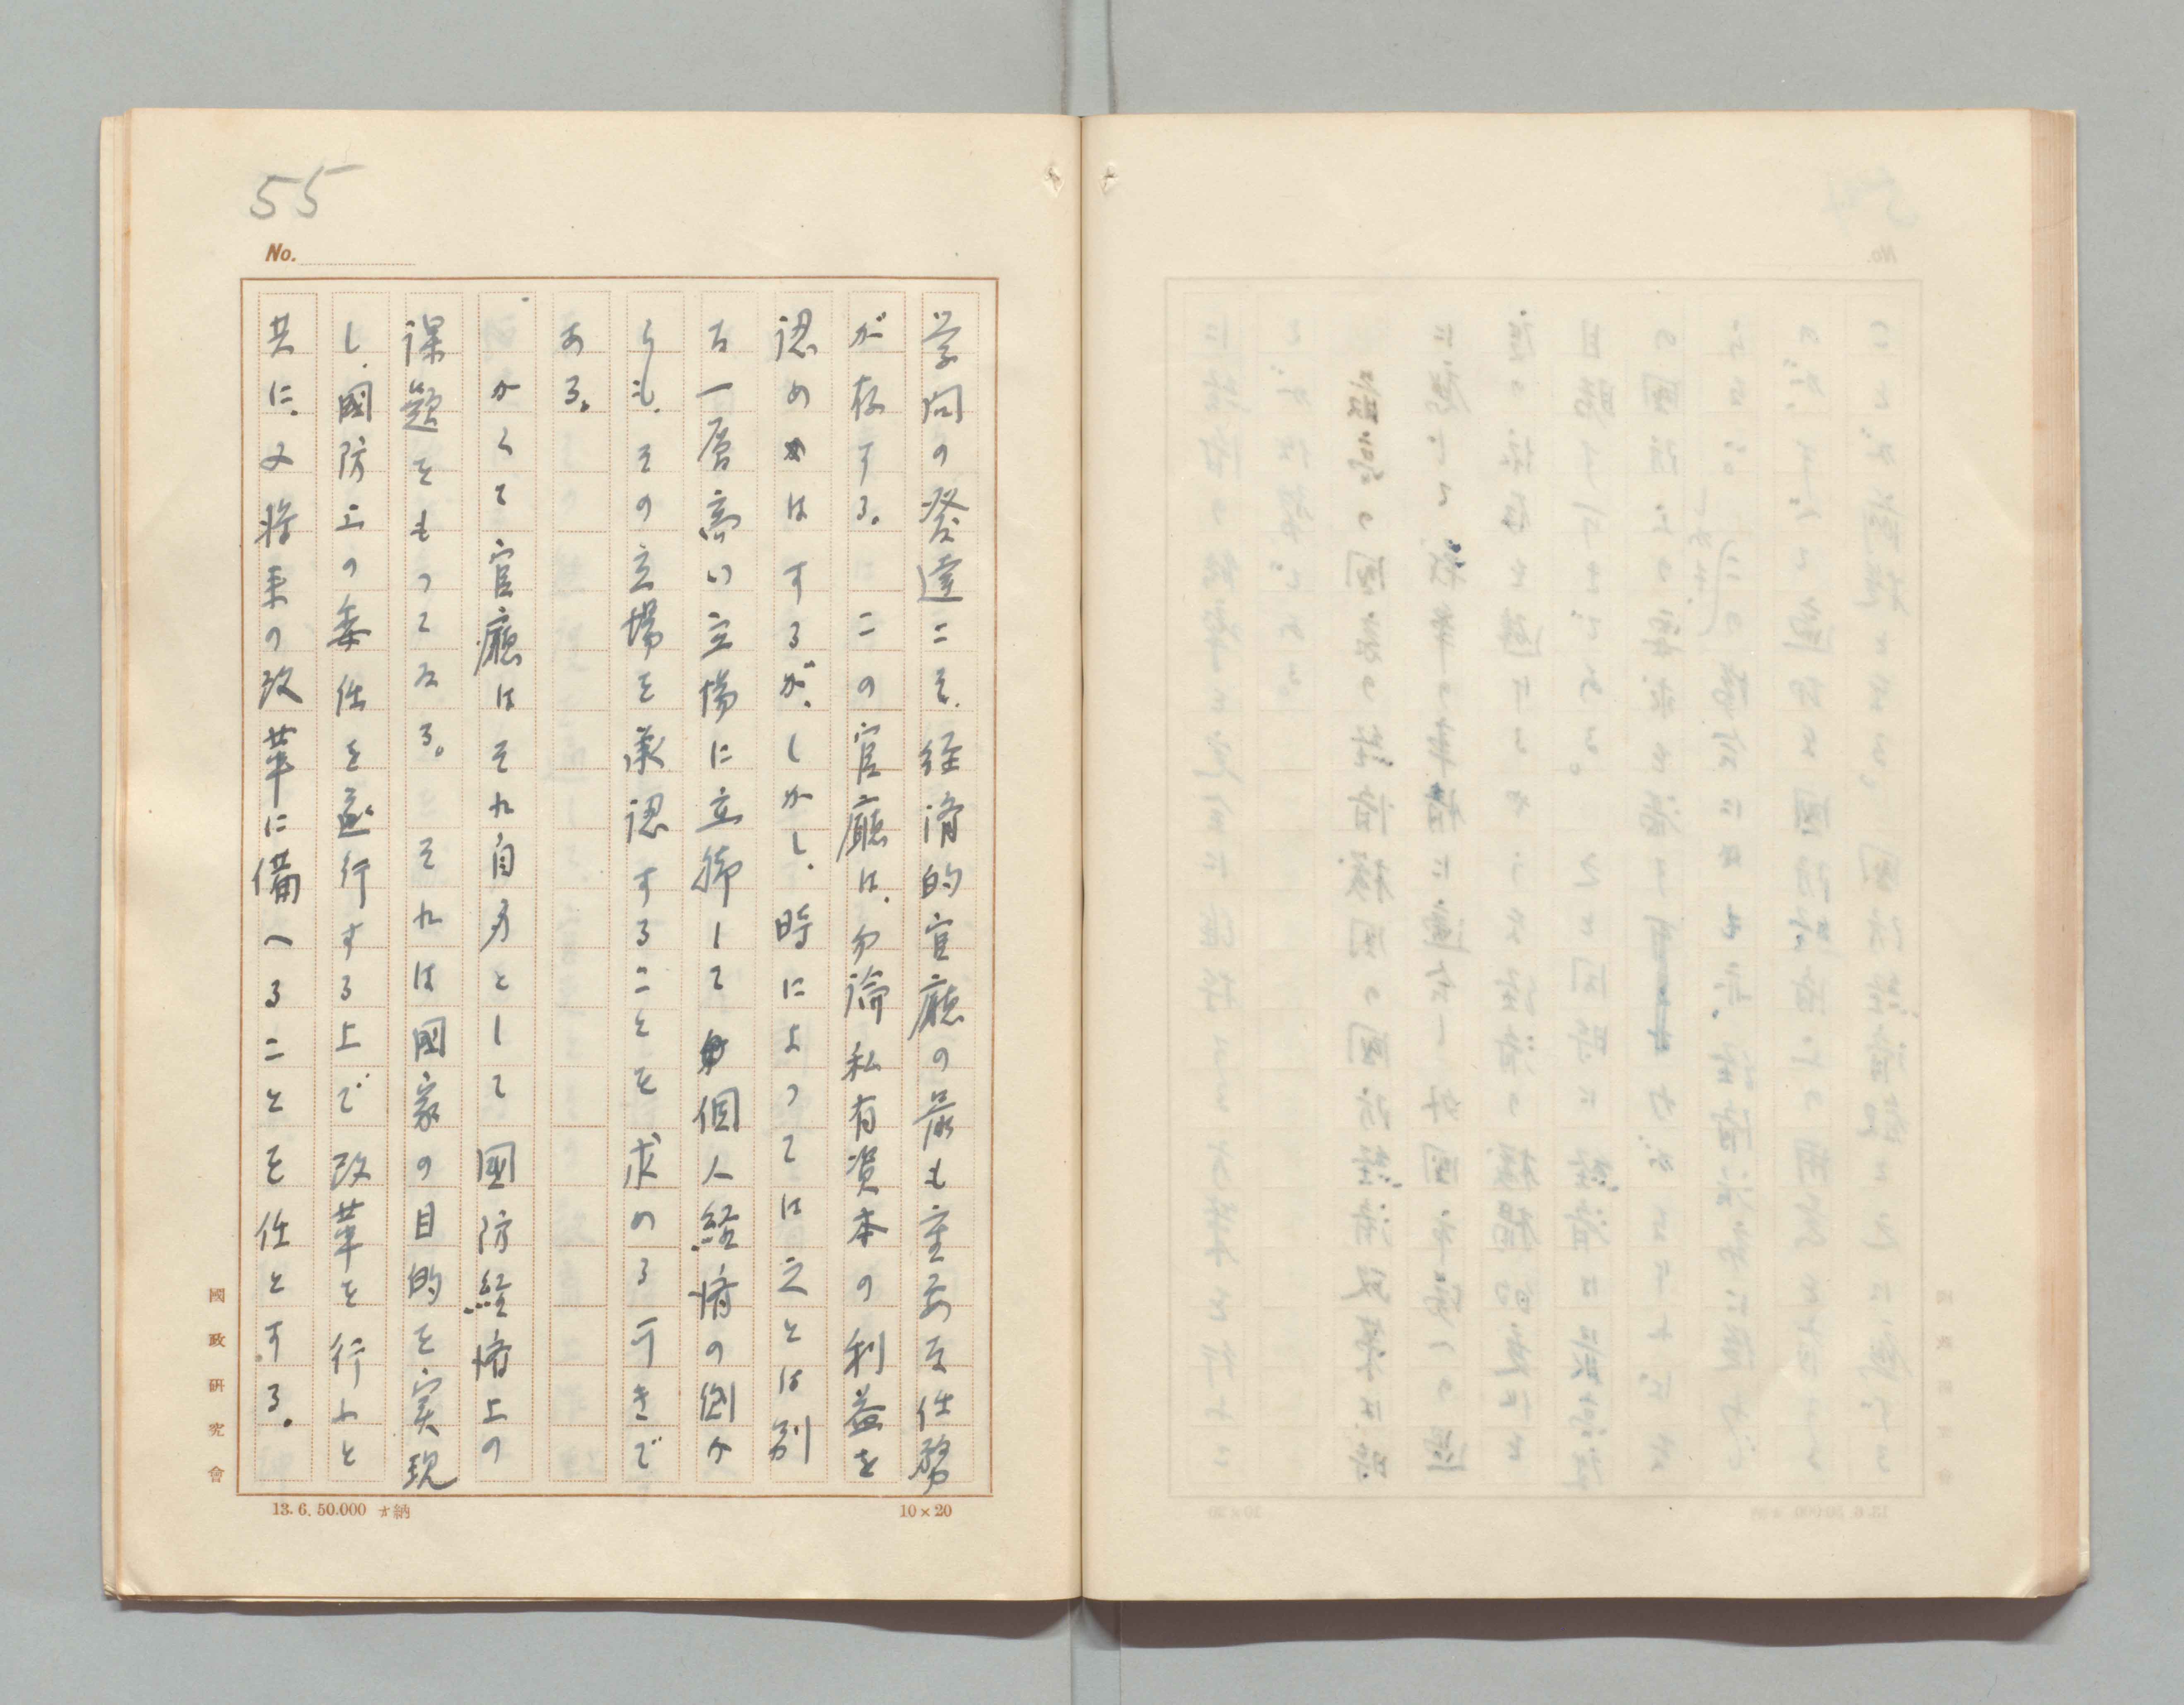 55
No.
学問の発達こそ、経済的官廳の最も重要な任務
が存する。この官廳は、勿論私有資本の利益を
認めはするが、しかし、時によつては之とは別
な一層高い立場に立脚して個人経済の側か
らも、その立場を承認することを求めるべきで
ある。
かくて官廳はそれ自身として国防経済上の
課題をもつてゐる。それは國家の目的を実現
し、國防上の委任を遂行する上で改革を行ふと
共に、又将来の改革に備へることを任とする。
國政研究會
13. 6. 50.000 オ納
10×20